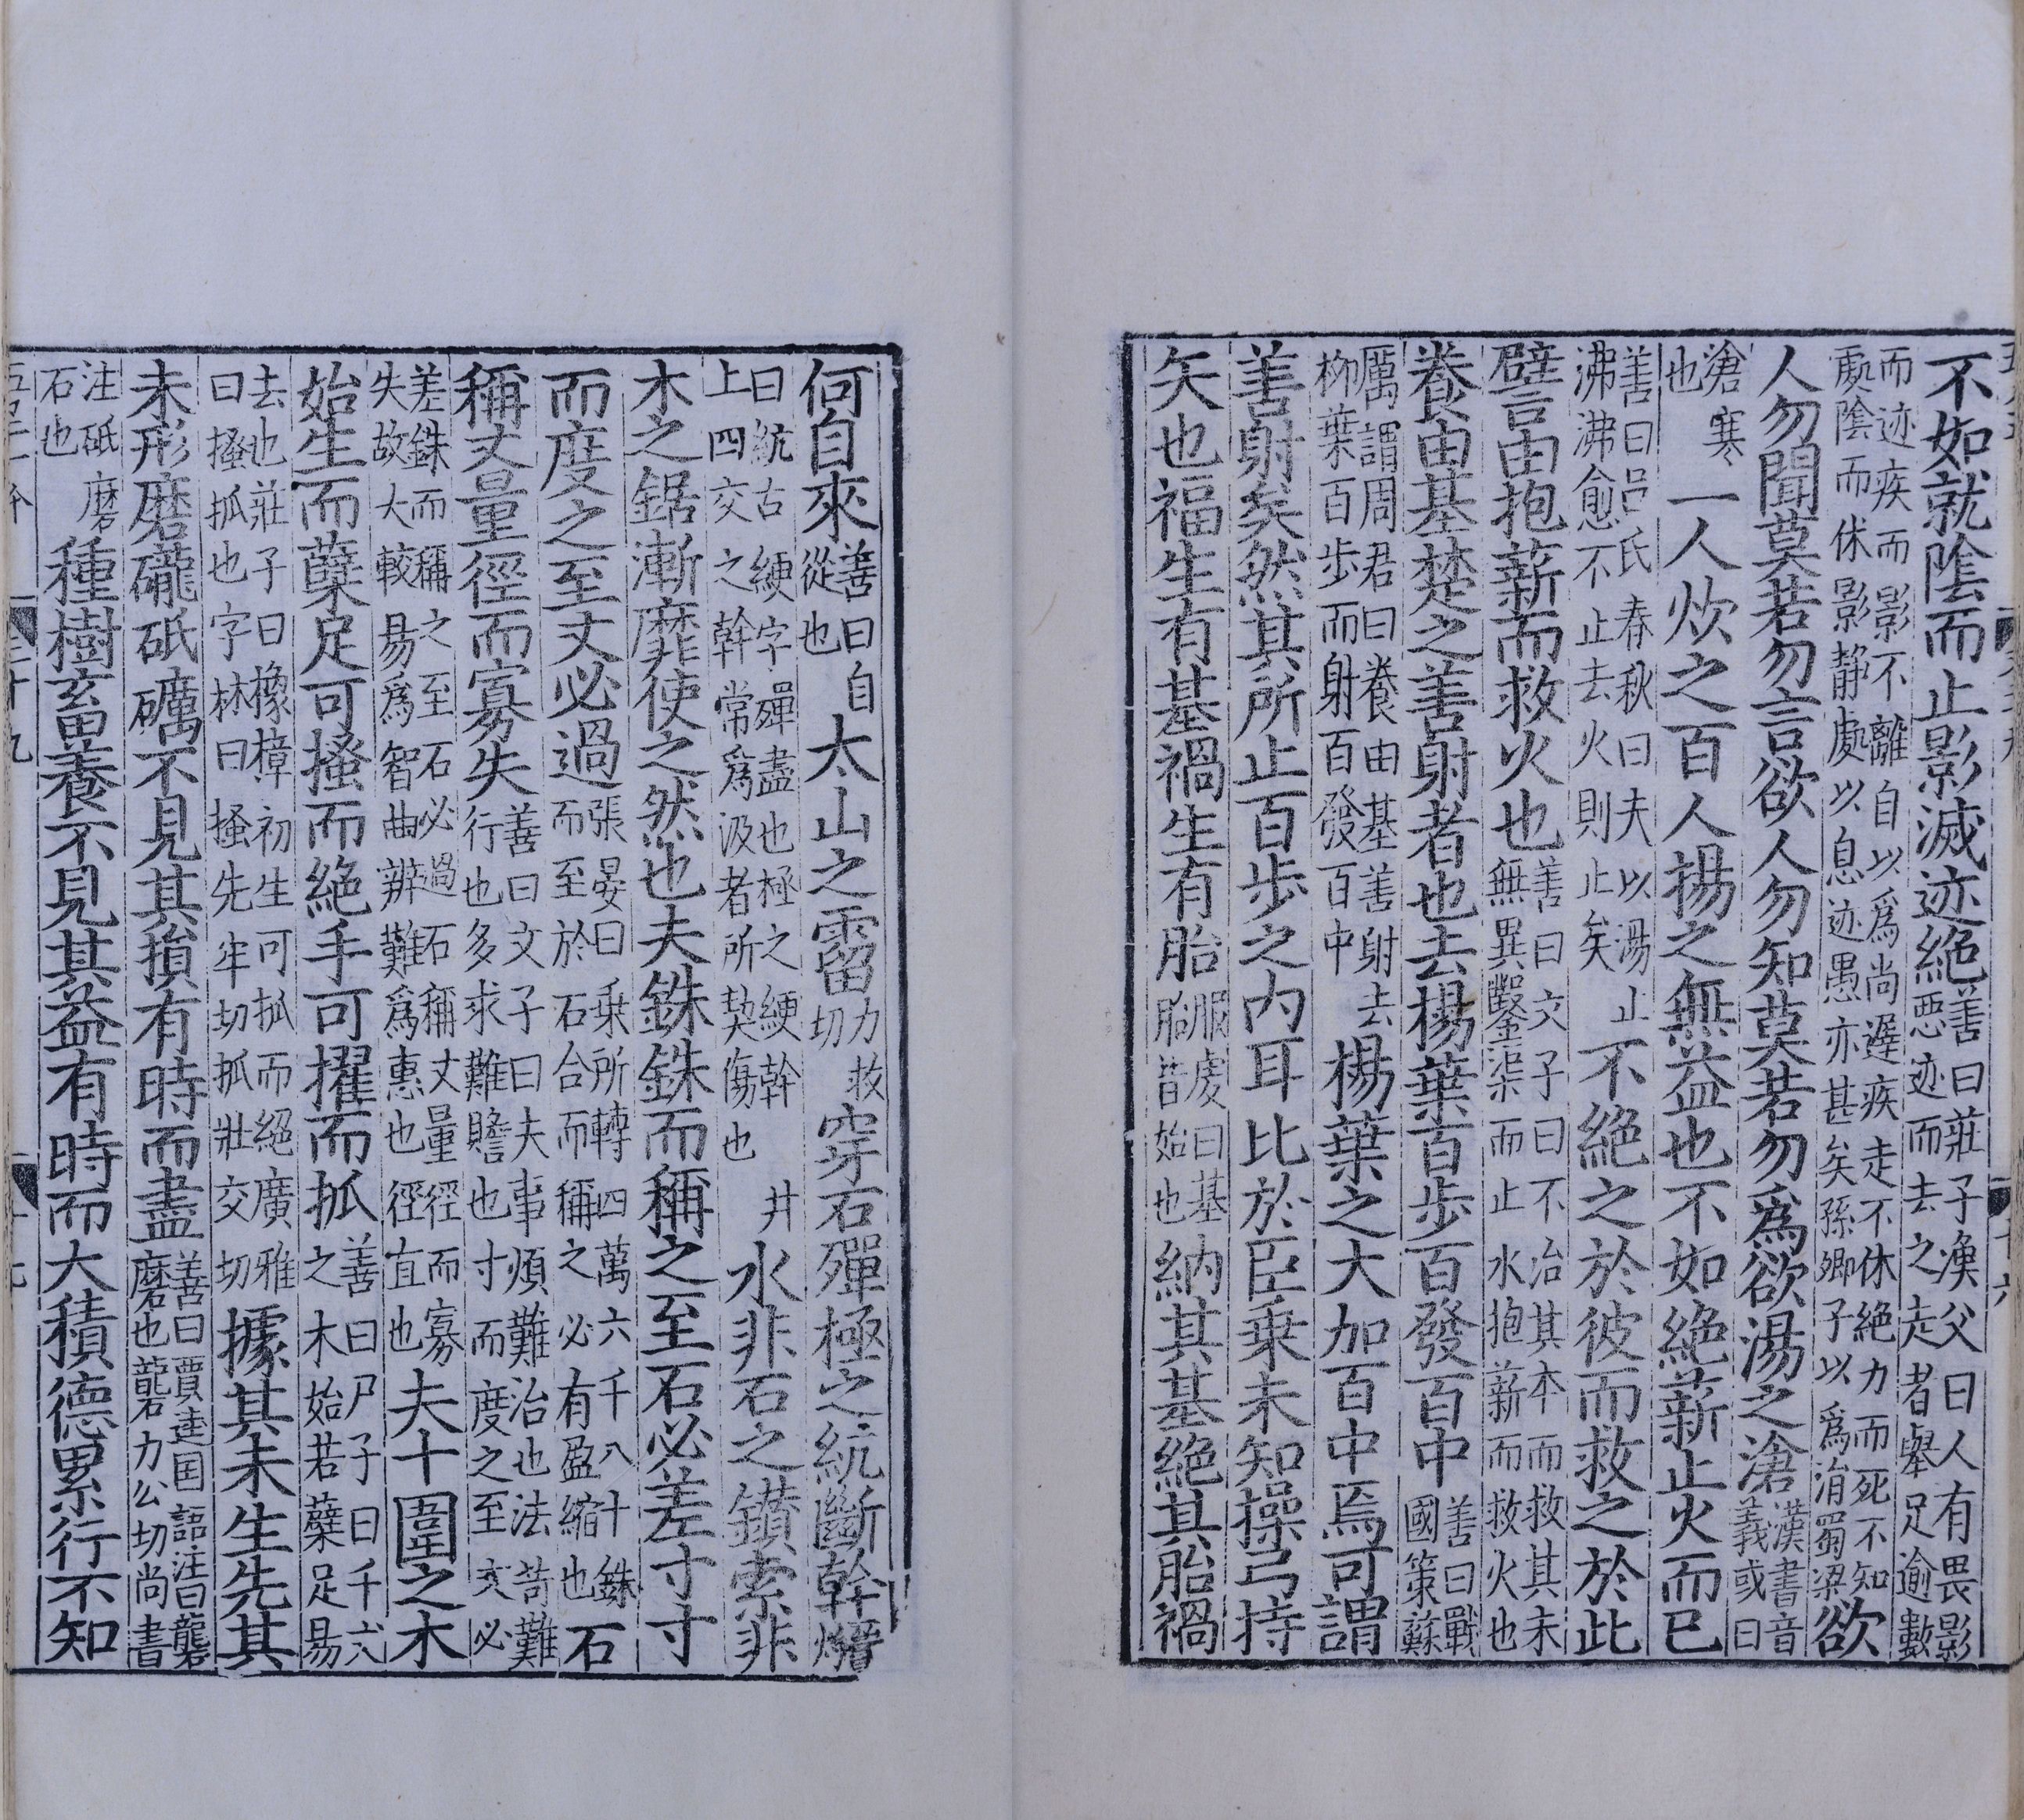 不如就陰而止影滅迹絶善曰莊子漁父曰人有畏影惡迹而去之走者舉足逾數
而迹疾而影不離自以爲尚遲疾走不休絶力而死不知處陰而休影静處以息迹愚亦甚矣孫卿子以爲涓蜀梁欲
人勿聞莫若勿言欲人勿知莫若勿爲欲湯之滄漢書音義或曰
滄寒也一人炊之百人揚之無益也不如絶薪止火而已
善曰吕氏春秋曰夫以湯止沸沸愈不止去火則止矣不絶之於彼而救之於此
譬由抱薪而救火也善曰文子曰不治其本而救其末無異鑿渠而止水抱薪而救火也
養由基楚之善射者也去楊葉百步百發百中善曰戰國策蘇
厲謂周君曰養由基善射去柳葉百步而射百發百中楊葉之大加百中焉可謂
善射矣然其所止百步之内耳比於臣乗未知操弓持
矢也福生有基禍生有胎服虔曰基胎皆始也納其基絶其胎禍
何自來善曰自從也太山之霤力救切穿石殫極之紞斷幹晉灼
曰紞古綆字殫盡也極之綆幹井上四交之幹常爲汲者所契傷也水非石之鑽索非
木之鋸漸靡使之然也夫銖銖而稱之至石必差寸寸
而度之至丈必過張晏曰乗所轉四萬六千八十銖而至於石合而稱之必有盈縮也石
稱丈量徑而寡失善曰文子曰夫事煩難治也法苛難行也多求難贍也寸而度之至丈必
差銖而稱之至石必過石稱丈量徑而寡失故大較易爲智曲辨難爲惠也徑直也夫十圍之木
始生而蘖足可搔而絶手可擢而抓善曰尸子曰千丈之木始若蘖足易
去也莊子曰橡樟初生可抓而絶廣雅曰搔抓也字林曰搔先牢切抓壯交切據其未生先其
未形磨礲砥礪不見其損有時而盡善曰賈逵国語注曰礲磨也礲力公切尚書
注砥磨石也種樹畜養不見其益有時而大積德累行不知